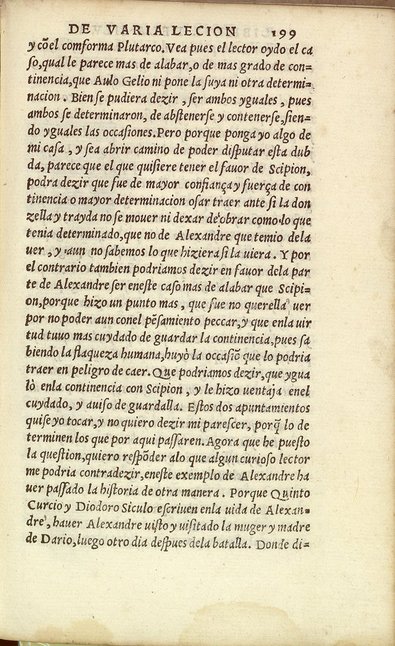 DE VARIA LECION 199
y cõ el comforma Plutarco. Vea pues el lector oydo el ca
so, qual le parece mas de alabar, o de mas grado de con-
tinencia, que Aulo Gelio ni pone la suya ni otra determi-
nacion. Bien se pudiera dezir, ser ambos yguales, pues
ambos se determinaron, de abstenerse y contenerse, sien-
do yguales las occasiones. Pero porque ponga yo algo de
mi casa, y sea abrir camino de poder disputar esta dub
da, parece que el que quisiere tener el favor de Scipion,
podra dezir que fue de mayor confiança y fuerça de con
tinencia o mayor determinacion osar traer ante si la don
zella y trayda no se mouer ni dexar de obrar como lo que
tenia determinado, que no de Alexandre que temio dela
uer, y aun no sabemos lo que hiziera si la uiera. Y por
el contrario tambien podriamos dezir en fauor dela par
te de Alexandre ser eneste caso mas de alabar que Scipi-
on, porque hizo un punto mas, que fue no querella uer
por no poder aun conel pẽsamiento peccar, y que enla uir
tud tuuo mas cuydado de guardar la continencia, pues sa
biendo la flaqueza humana, huyò la occasiõ que lo podria
traer en peligro de caer. Que podriamos dezir, que ygua
lò enla continencia con Scipion, y le hizo ventaja enel
cuydado, y auiso de guardalla. Estos dos apuntamientos
quise yo tocar, y no quiero dezir mi parescer, porq̃ lo de
terminen los que por aqui passaren. Agora que he puesto
la question, quiero respõder alo que algun curioso lector
me podria contradezir, eneste exemplo de Alexandre ha
uer passado la historia de otra manera. Porque Quinto
Curcio y Diodoro Siculo escriuen enla uida de Alexan-
dre, hauer Alexandre uisto y uisitado la muger y madre
de Dario, luego otro dia despues dela batalla. Donde di-